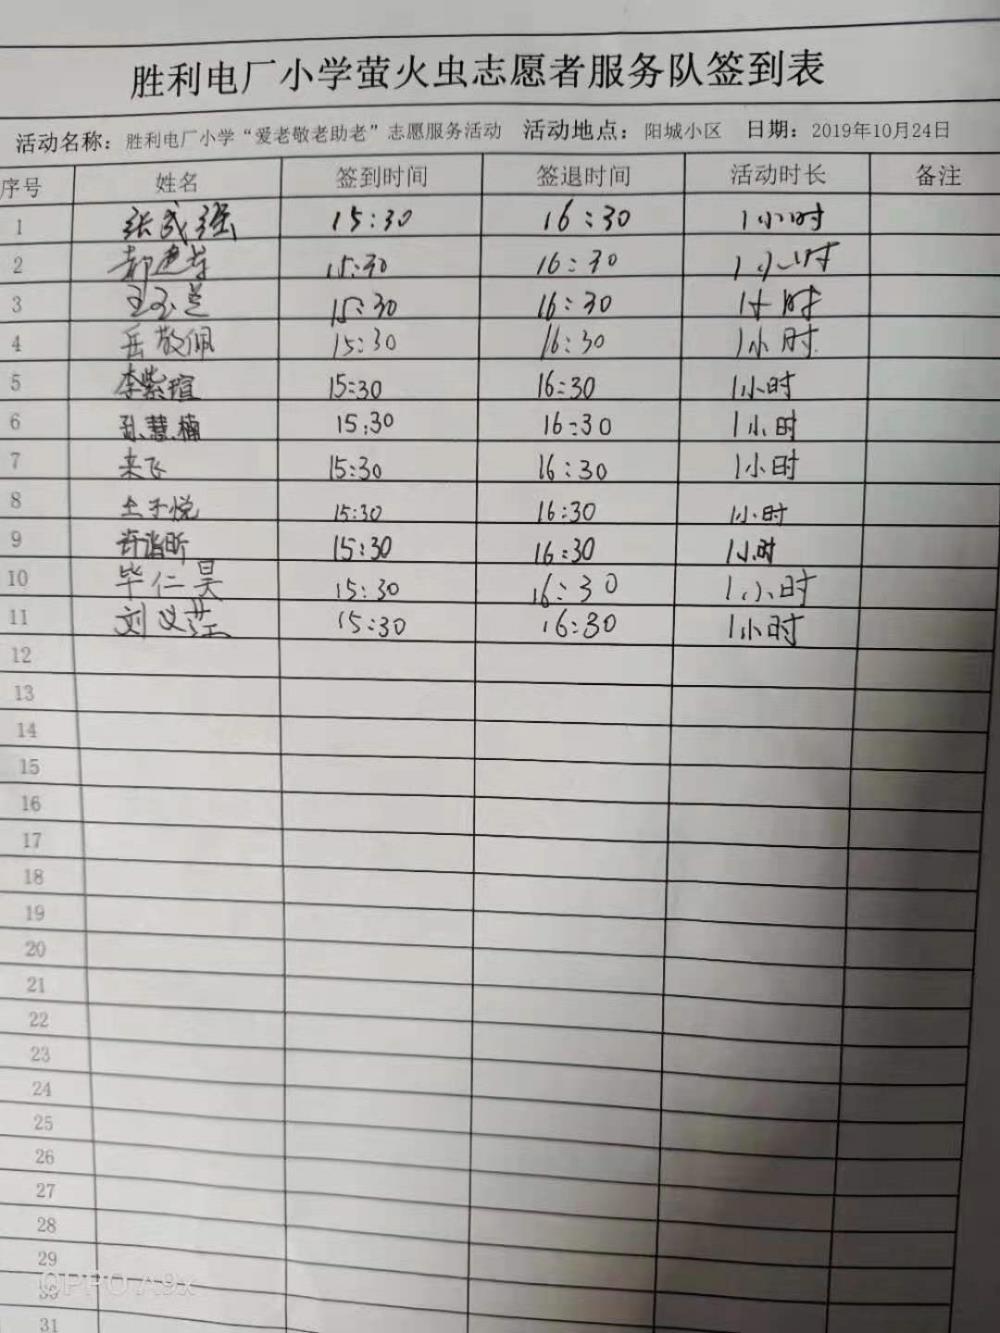 胜利电厂小学萤火虫志愿者服务队签到表
活动名称：胜利电厂小学“爱老敬老助老”志愿服务活动 活动地点：阳城小区 日期：2019年10月24日
序号 姓名 签到时间 签退时间 活动时长 备注
1 张成强 15:30 16:30 1小时
2 15:30 16:30 1小时
3 王玉兰 15:30 16:30 1小时
4 岳敬佩 15:30 16:30 1小时
5 李紫瑄 15:30 16:30 1小时
6 孙慧楠 15:30 16:30 1小时
7 来飞 15:30 16:30 1小时
8 15:30 16:30 1小时
9 15:30 16:30 1小时
10 毕仁昊 15:30 16:30 1小时
11 刘义 15:30 16:30 1小时
12
13
14
15
16
17
18
19
20
21
22
23
24
25
26
27
28
29
OPPO A9x
30
31